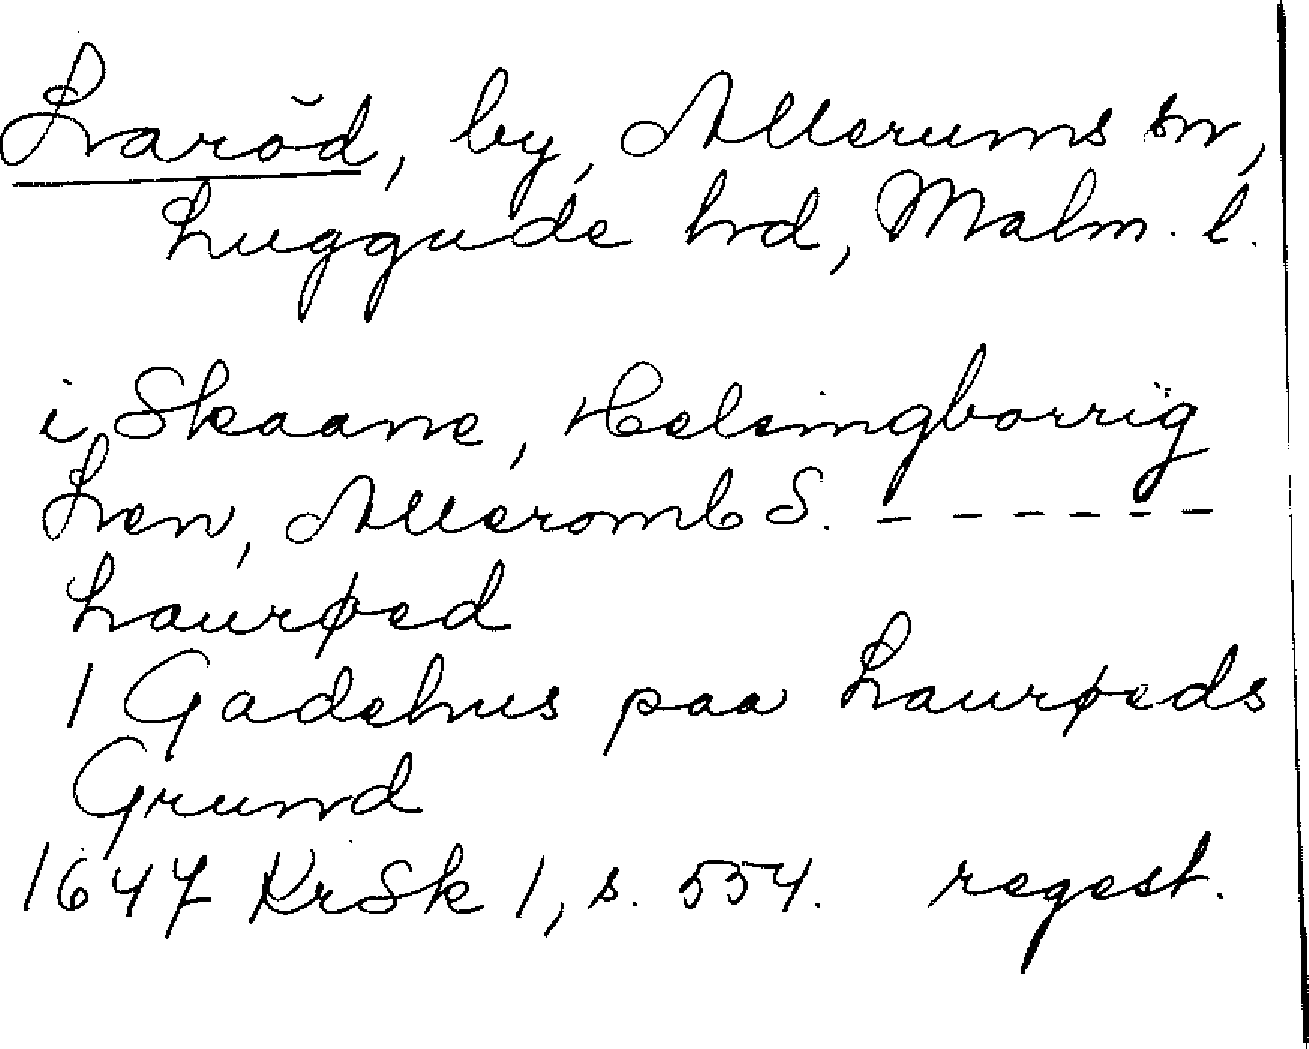 Laröd, by, Allerums sn,
Luggude hd, Malm. l.
i Skaane, Helsingborrig
Len, Alleromb S. - - - - - -
Laurøed
1 Gadehus paa Laurøeds
Grund
1647 KrSk 1, s. 554. regest.